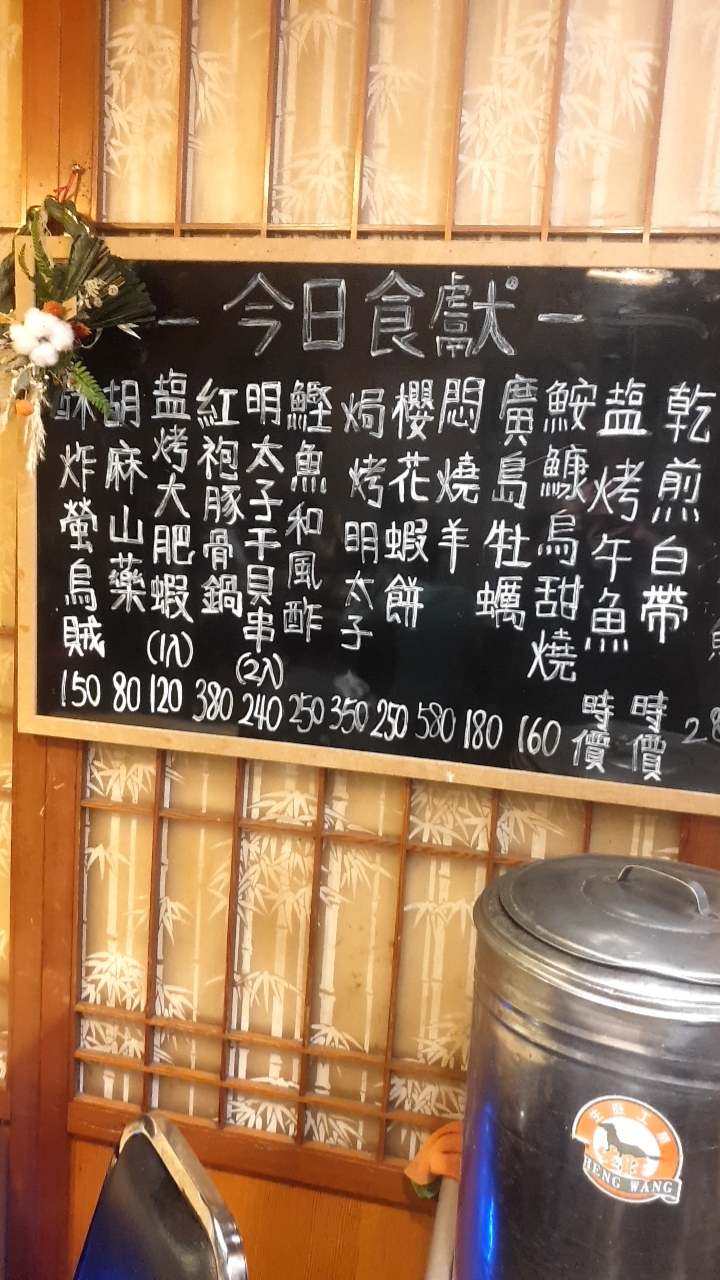 今日食獻
乾煎白帶 時價
塩烤午魚 時價
鮟鱇烏甜燒 160
廣島牡蠣 180
悶燒羊 580
櫻花蝦餅 250
焗烤明太子 350
鰹魚和風酢 250
明太子干貝串(2入) 240
紅袍豚骨鍋 380
塩烤大肥蝦(1入) 120
胡麻山藥 80
酥炸螢烏賊 150
HENG WANG